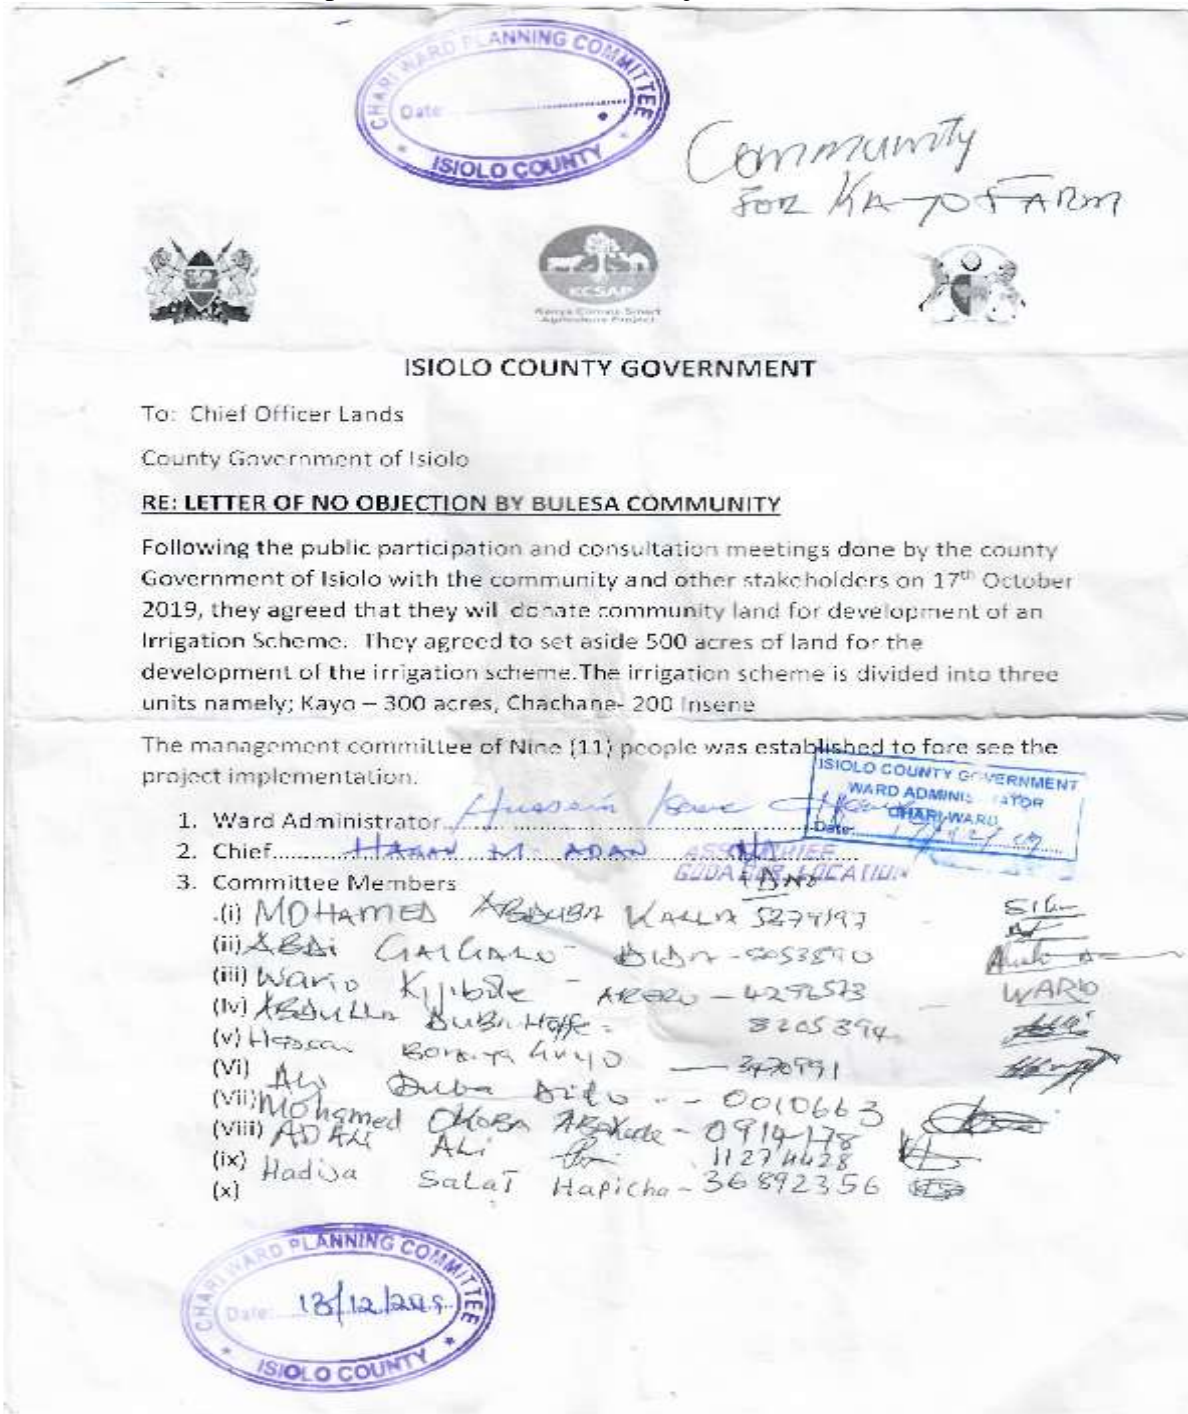 CHARI WARD PLANNING COMMITTEE
Date:
* ISIOLO COUNTY *
Community
FOR KAYO FARM
KCSAP
Kenya Climate Smart
Agriculture Project
ISIOLO COUNTY GOVERNMENT
To: Chief Officer Lands
County Government of Isiolo
RE: LETTER OF NO OBJECTION BY BULESA COMMUNITY
Following the public participation and consultation meetings done by the county
Government of Isiolo with the community and other stakeholders on 17th October
2019, they agreed that they will donate community land for development of an
Irrigation Scheme. They agreed to set aside 500 acres of land for the
development of the irrigation scheme.The irrigation scheme is divided into three
units namely; Kayo – 300 acres, Chachane- 200 Insene
The management committee of Nine (11) people was established to fore see the
project implementation.
ISIOLO COUNTY GOVERNMENT
WARD ADMINISTRATOR
CHARI WARD
Date:
1. Ward Administrator Hussein
2. Chief HASAN M. ADAN ASST CHIEF
LOCATION
3. Committee Members ID NO
SIGN
(i) MOHAMED KALLA 5279197
(ii) ABDI GALGALO DIDA - 5053890
(iii) Wario - ARERO - 4296573 WARIO
(iv) ABDULLA DUBA - 8205394
(v) Hassan Guyo - 3470991
(Vi) Ali Duba Dido - - 0010663
(Vii) Mohamed - 0914178
(Viii) ADAN ALI 11274428
(ix) Hadija Salat Hapicha - 36892356
(x)
CHARI WARD PLANNING COMMITTEE
Date: 13/12/2019
* ISIOLO COUNTY *